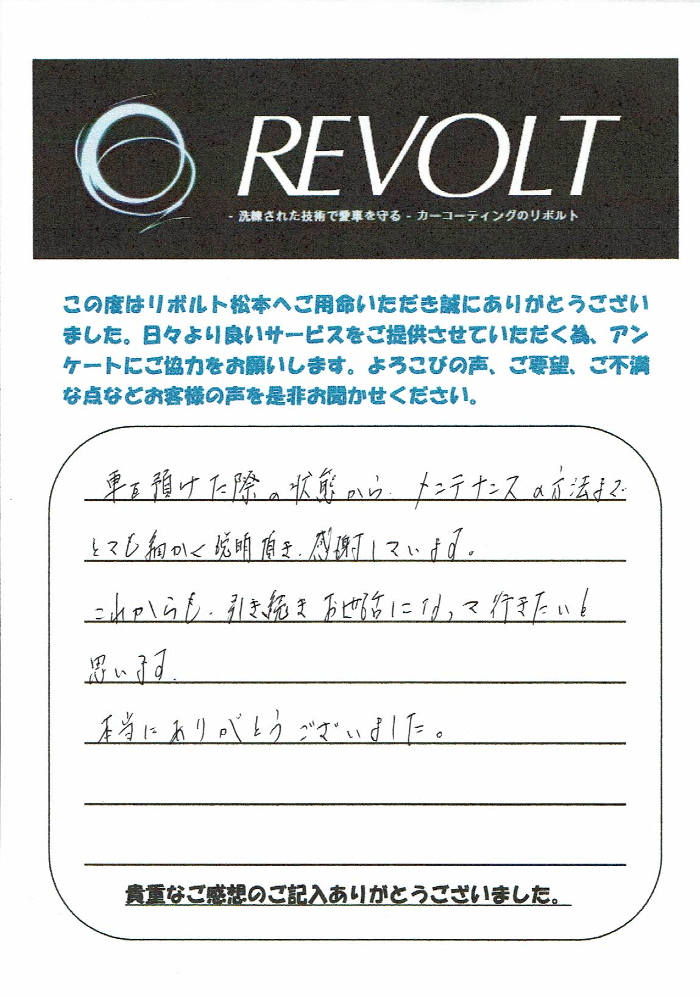 REVOLT
- 洗練された技術で愛車を守る - カーコーティングのリボルト
この度はリボルト松本へご用命いただき誠にありがとうござい
ました。日々より良いサービスをご提供させていただく為、アン
ケートにご協力をお願いします。よろこびの声、ご要望、ご不満
な点などお客様の声を是非お聞かせください。
車を預けた際の状態から、メンテナンスの方法まで
とても細かく説明頂き、感謝しています。
これからも、引き続きお世話になって行きたいと
思います。
本当にありがとうございました。
貴重なご感想のご記入ありがとうございました。